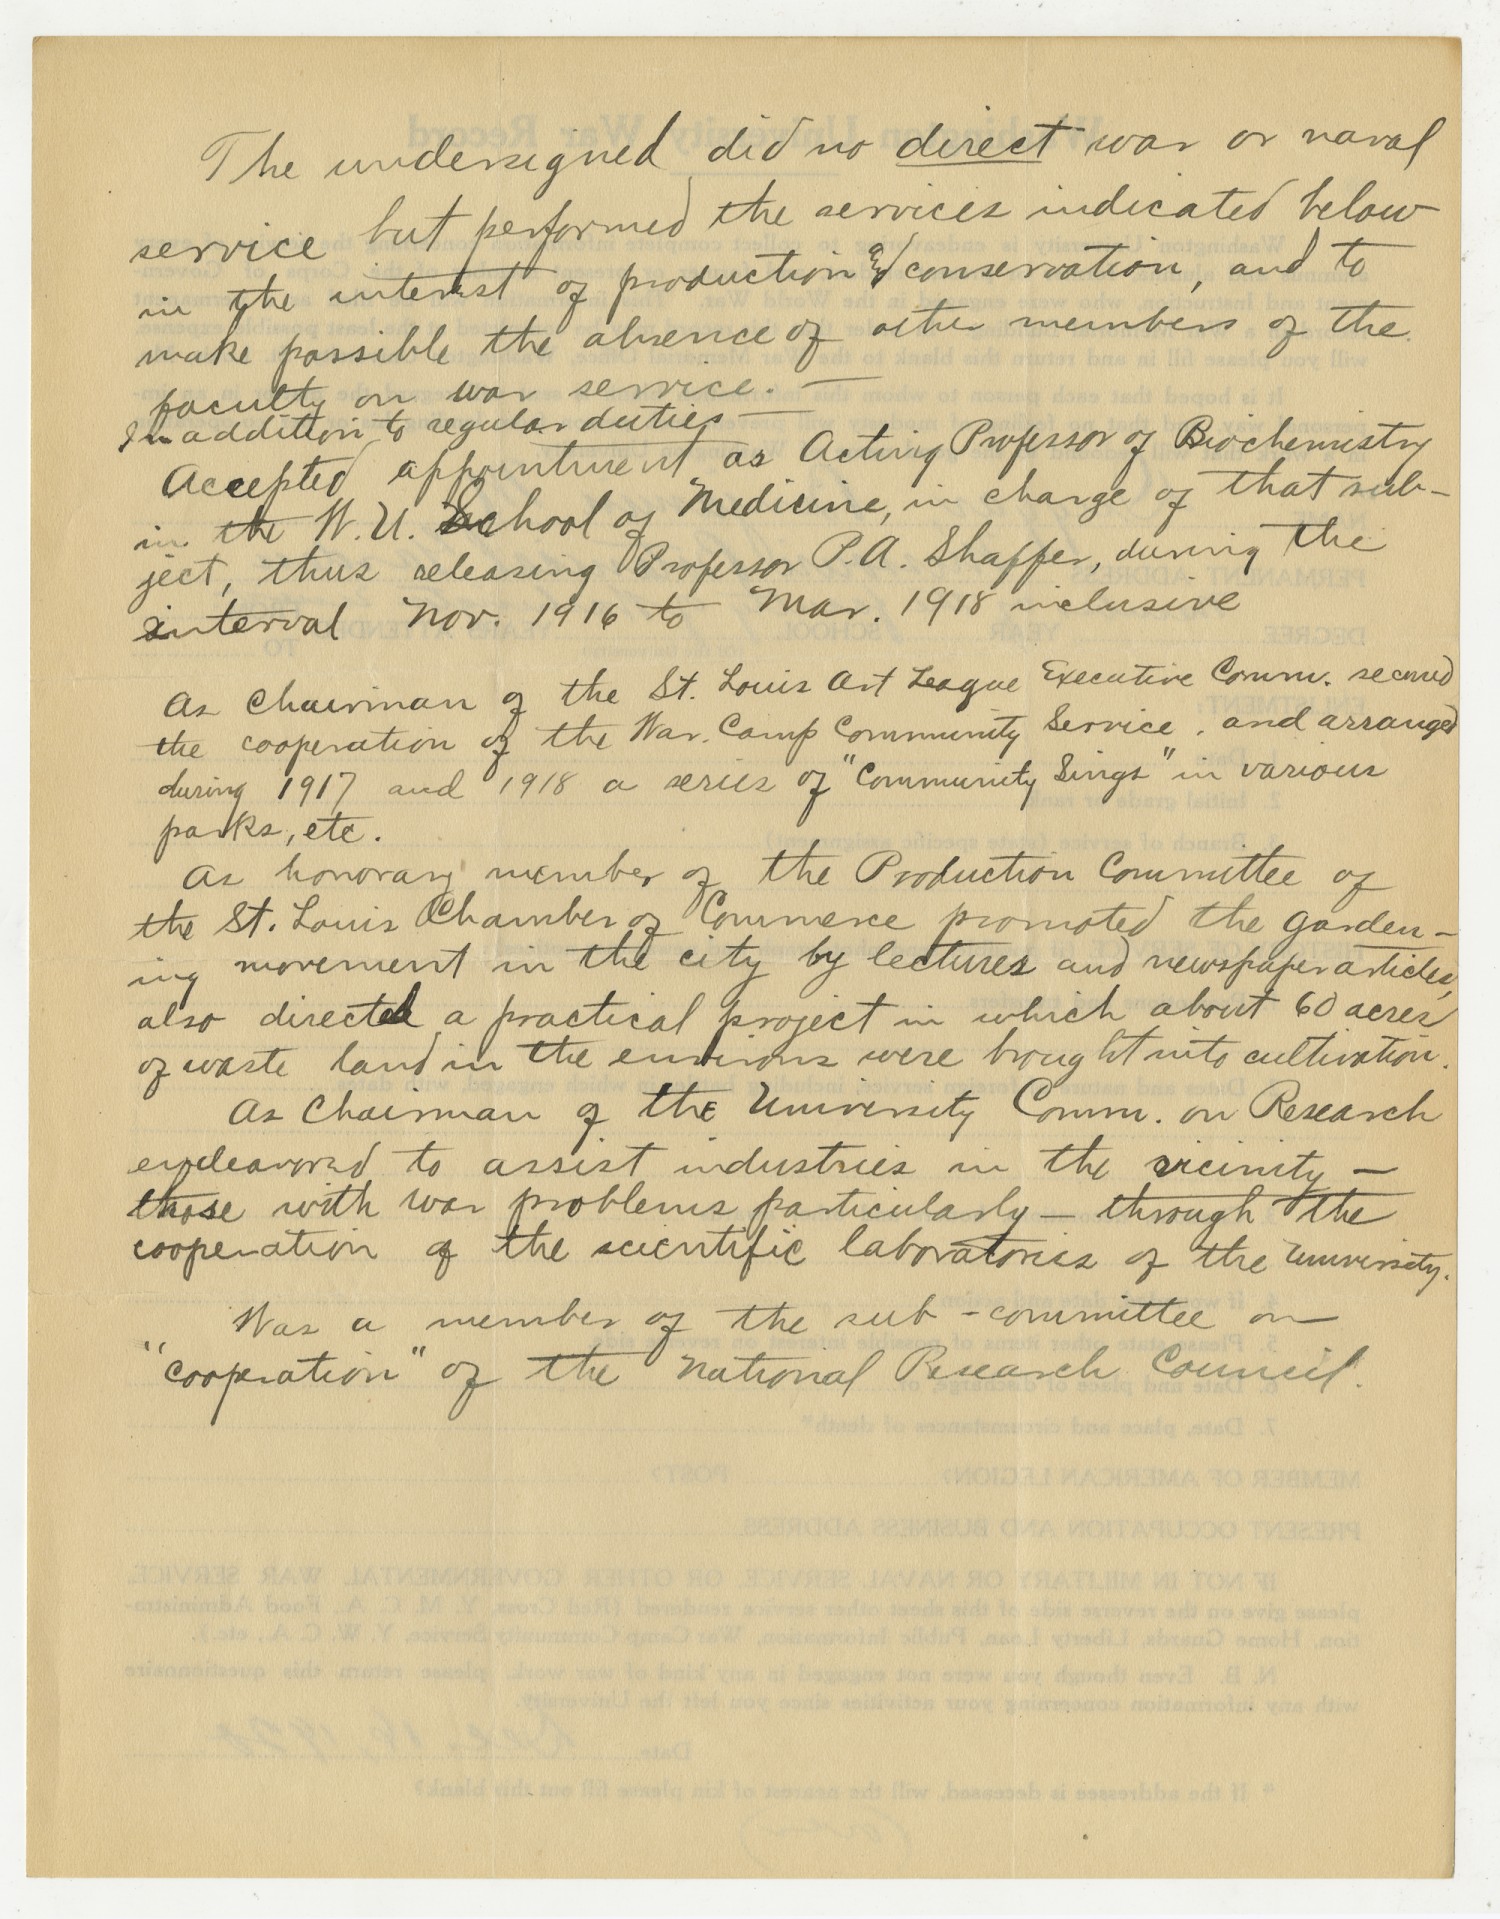 The undersigned did no direct war or naval
service but performed the services indicated below
in the interest of production and conservation, and to
make possible the absence of other members of the
faculty on war service. —
In addition to regular duties —
Accepted appointment as Acting Professor of Biochemistry
in the W.U. School of Medicine, in charge of that sub-
ject, thus releasing Professor P.A. Shaffer, during the
interval Nov. 1916 to Mar. 1918 inclusive
As Chairman of the St. Louis Art League Executive Comm. secured
the cooperation of the War Camp Community Service, and arranged
during 1917 and 1918 a series of "Community Sings" in various
parks, etc.
As honorary member of the Production Committee of
the St. Louis Chamber of Commerce promoted the garden-
ing movement in the city by lectures and newspaper articles,
also directed a practical project in which about 60 acres
of waste land in the environs were brought into cultivation.
As Chairman of the University Comm. on Research
endeavored to assist industries in the vicinity —
those with war problems particularly — through the
cooperation of the scientific laboratories of the University.
Was a member of the sub-committee on
"cooperation" of the National Research Council.